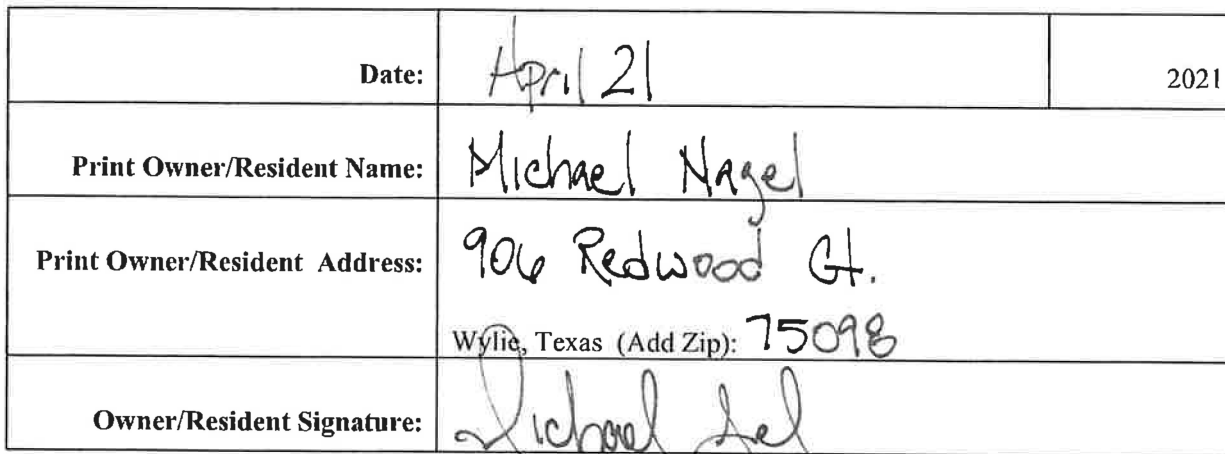 Date: April 21 2021
Print Owner/Resident Name: Michael Nagel
Print Owner/Resident Address: 906 Redwood Ct.
Wylie, Texas (Add Zip): 75098
Owner/Resident Signature: Michael